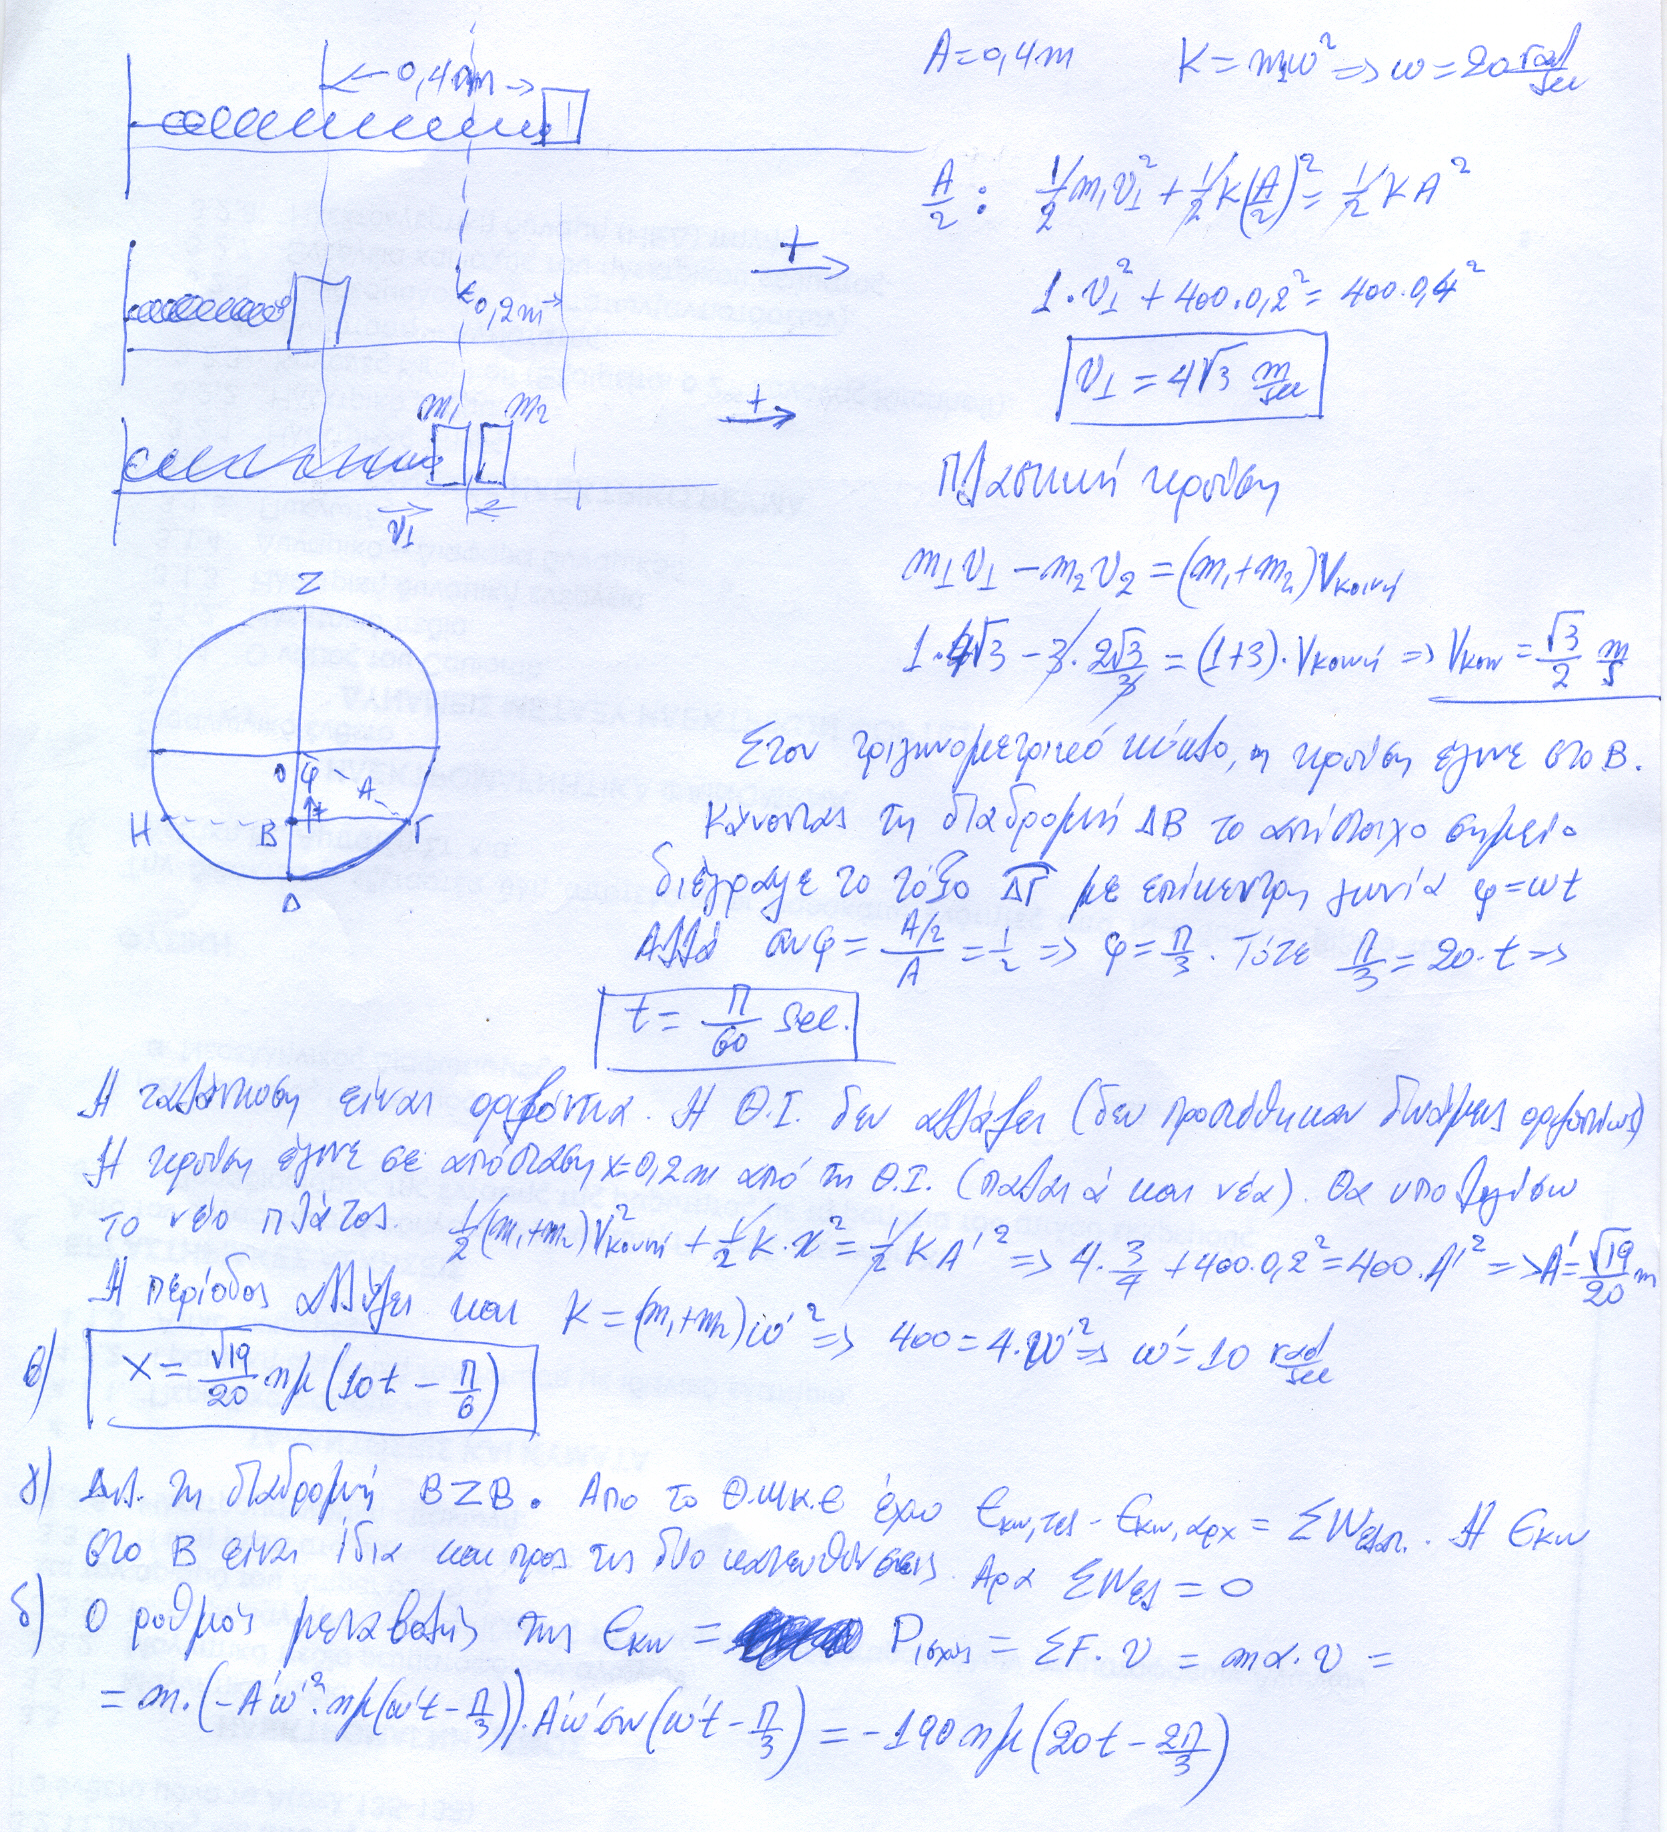 0,4m
A=0,4m K=m₁ω²=>ω=20 rad/sec
A/2 : 1/2 m₁υ₁² + 1/2 K(A/2)² = 1/2 K A²
+
0,2m
1·υ₁² + 400·0,2² = 400·0,4²
υ₁ = 4√3 m/sec
m₁ m₂ +
υ₁
Πλαστική κρούση
m₁υ₁ - m₂υ₂ = (m₁+m₂)Vκοινή
1·4√3 - 3·2√3/3 = (1+3)·Vκοινή => Vκοιν = √3/2 m/s
Z
Ο φ A
Η B + Γ
Δ
Στον τριγωνομετρικό κύκλο, η κρούση έγινε στο Β.
Κάνοντας τη διαδρομή ΔΒ το αντίστοιχο σημείο
διέγραψε το τόξο ΔΓ με επίκεντρη γωνία φ=ωt
Αλλά συνφ = A/2/A = 1/2 => φ = π/3. Τότε π/3 = 20·t =>
t = π/60 sec.
Η ταλάντωση είναι οριζόντια. Η Θ.Ι. δεν αλλάζει (δεν προστέθηκαν δυνάμεις οριζοντίως)
Η κρούση έγινε σε απόσταση x=0,2m από τη Θ.Ι. (παλαιά και νέα). Θα υπολογίσω
το νέο πλάτος. 1/2 (m₁+m₂)Vκοινή² + 1/2 K·x² = 1/2 K A'² => 4·3/4 + 400·0,2² = 400·A'² => A' = √19/20 m
Η περίοδος αλλάζει και K = (m₁+m₂)ω'² => 400 = 4·ω'² => ω' = 10 rad/sec
x = √19/20 ημ(10t - π/6)
γ) Δηλ. τη διαδρομή ΒΖΒ. Απο το Θ.Μ.Κ.Ε έχω Εκιν,τελ - Εκιν,αρχ = ΣWελατ. Η Εκιν
στο Β είναι ίδια και προς τις δυο κατευθύνσεις. Αρα ΣWελ = 0
δ) Ο ρυθμός μεταβολής της Εκιν = Pισχύς = ΣF·υ = mα·υ =
= m·(-A'ω'²·ημ(ω't - π/3))·A'ω'συν(ω't - π/3) = -190ημ(20t - 2π/3)